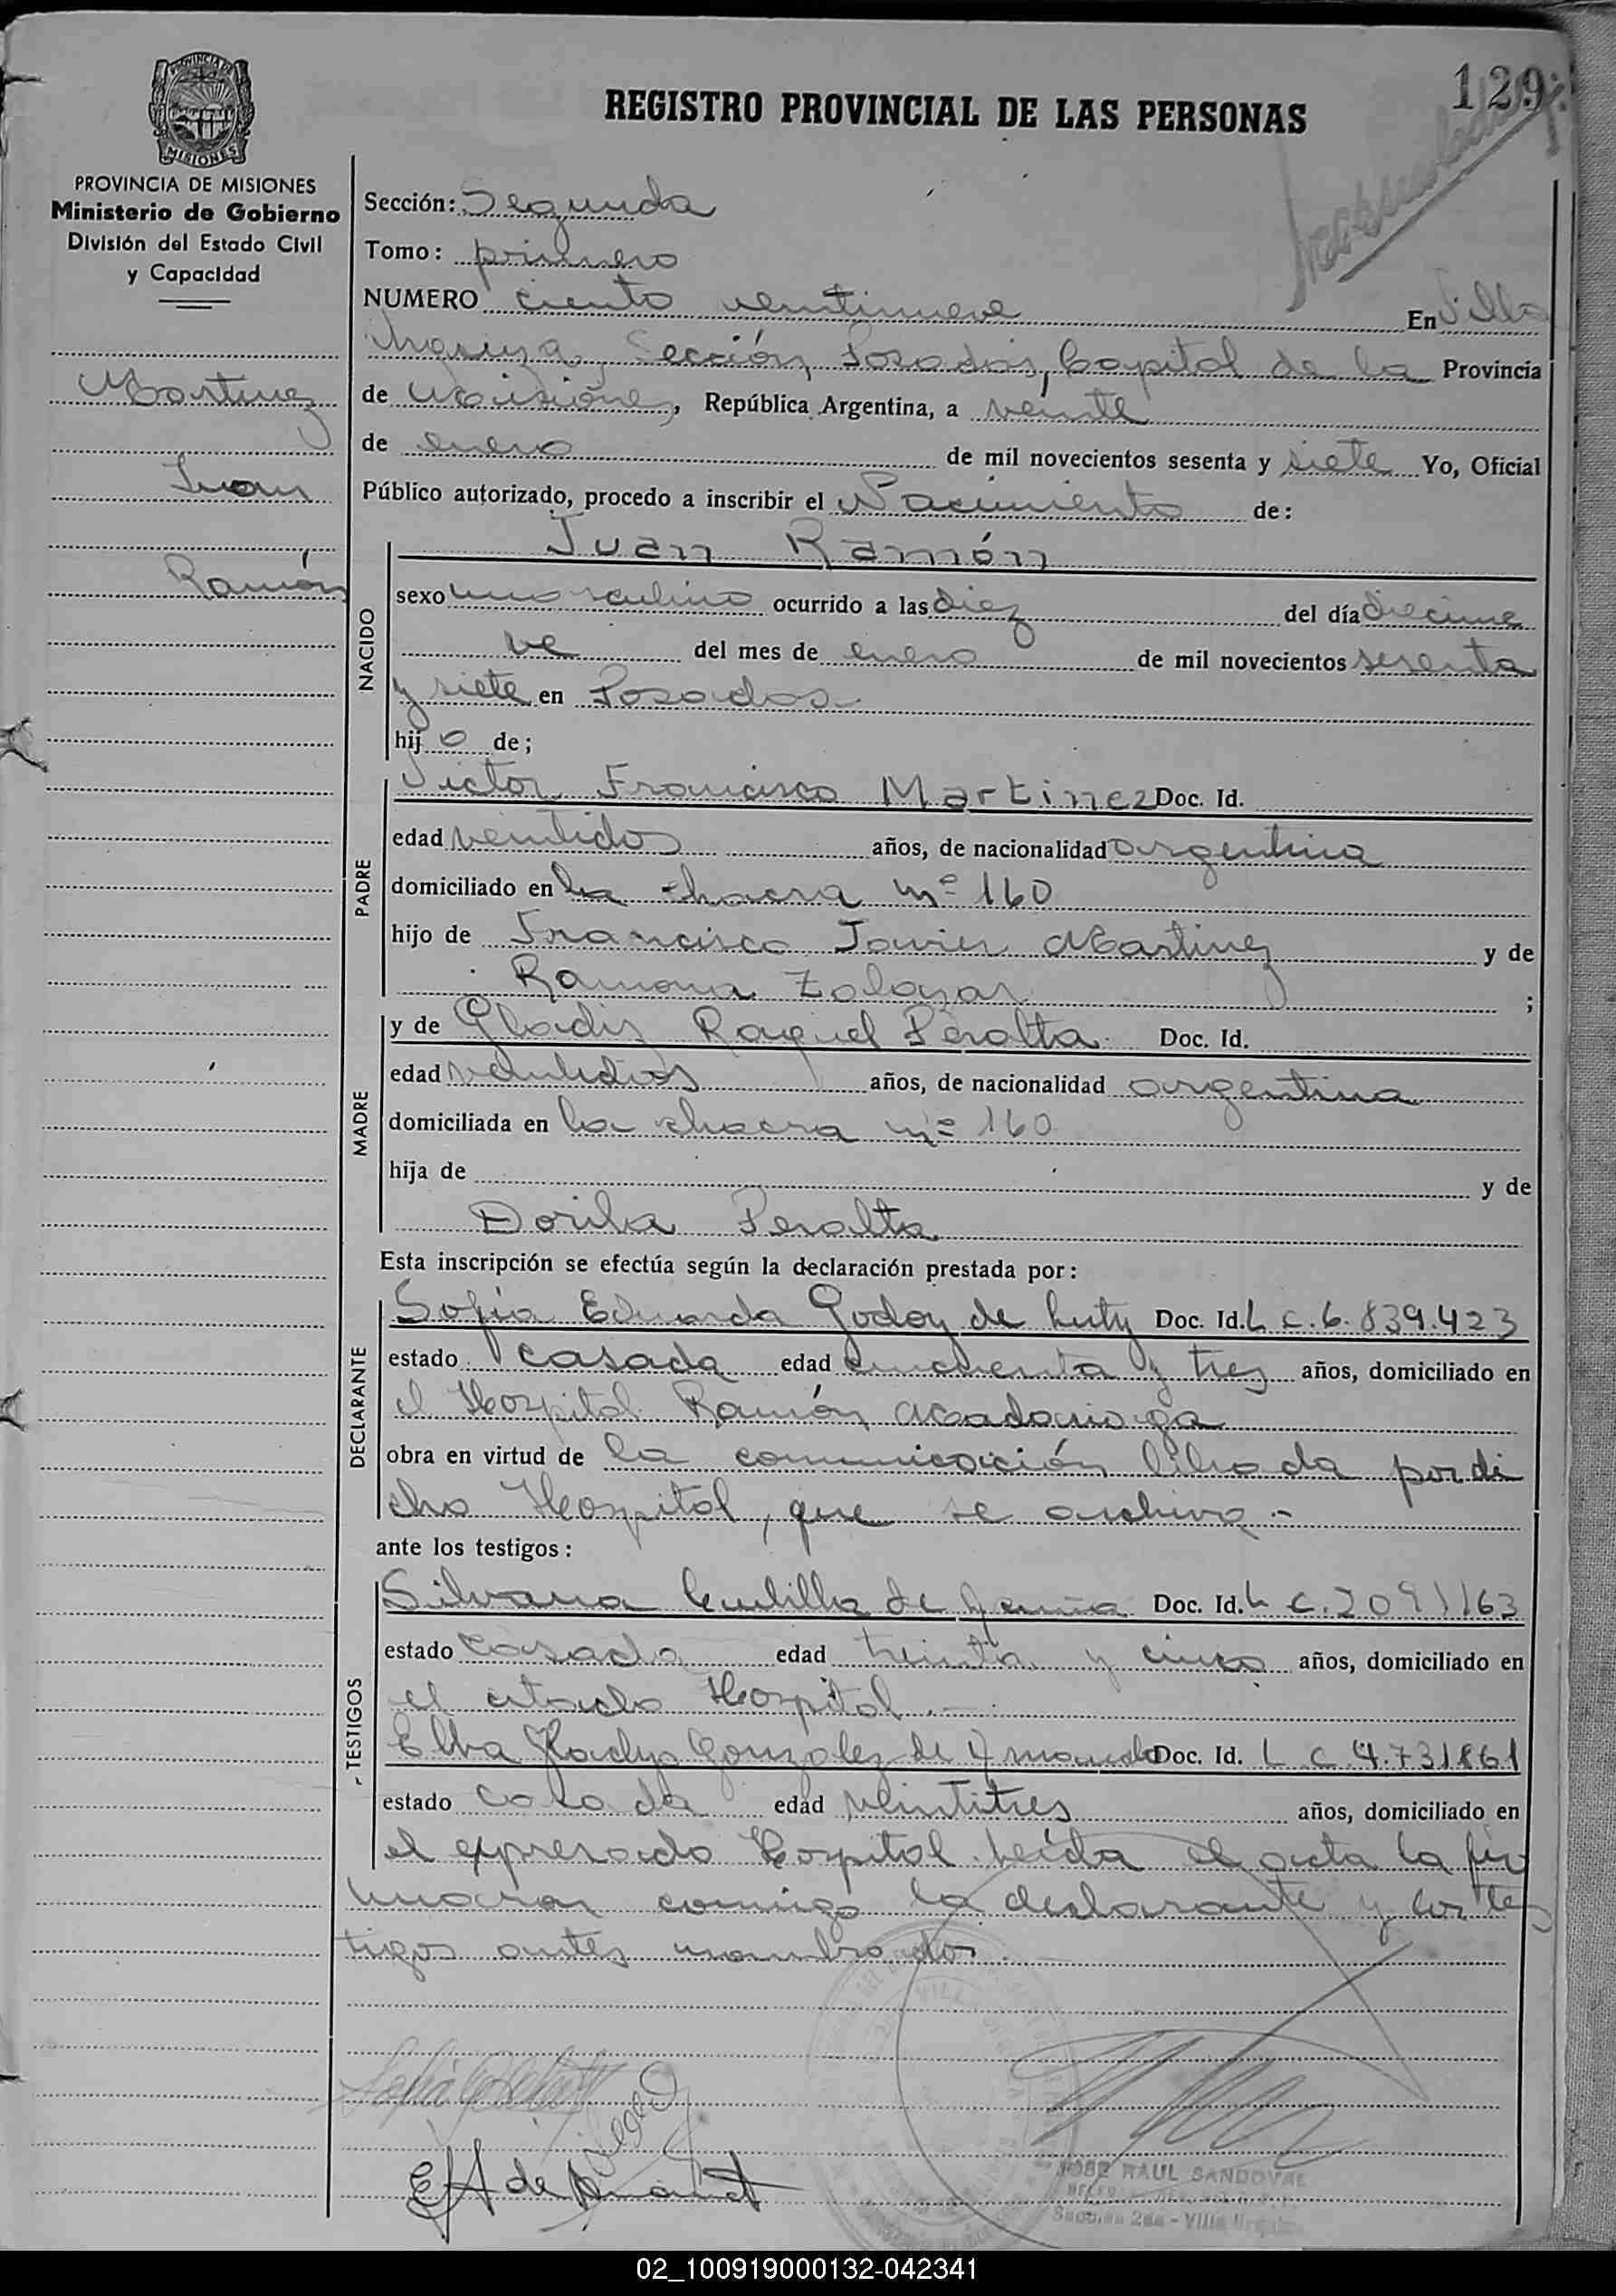 129
REGISTRO PROVINCIAL DE LAS PERSONAS
PROVINCIA DE
MISIONES
PROVINCIA DE MISIONES
Ministerio de Gobierno
División del Estado Civil
y Capacidad
Martinez
Juan
Ramón
Sección: Segunda
Tomo: primero
NUMERO ciento ventinueve En Villa
Sección, Posadas, Capital de la Provincia
de Misiones, República Argentina, a veinte
de enero de mil novecientos sesenta y siete Yo, Oficial
Público autorizado, procedo a inscribir el Nacimiento de:
NACIDO
Juan Ramón
sexo masculino ocurrido a las diez del día diecinue
ve del mes de enero de mil novecientos sesenta
y siete en Posadas
hijo de;
PADRE
Victor Francisco Martinez Doc. Id.
edad ventidos años, de nacionalidad argentina
domiciliado en la chacra nº 160
hijo de Francisco Javier Martinez y de
Ramona Zalazar ;
MADRE
y de Gladis Raquel Peralta Doc. Id.
edad ventidos años, de nacionalidad argentina
domiciliada en la chacra nº 160
hija de y de
Dorila Peralta
Esta inscripción se efectúa según la declaración prestada por:
DECLARANTE
Sofía Eduarda Godoy de Luty Doc. Id. L c. 6.839.423
estado casada edad cincuenta y tres años, domiciliado en
el Hospital Ramón Madariaga
obra en virtud de la comunicación librada por di
cho Hospital, que se archiva.-
ante los testigos:
TESTIGOS
Silvana de Doc. Id. L c. 2091163
estado casada edad treinta y cinco años, domiciliado en
el citado Hospital.-
Elba Gladys Gonzalez de Doc. Id. L c 4.731861
estado casada edad veintitres años, domiciliado en
el expresado Hospital. Leída el acta la fir
maron comigo la declarante y los tes
tigos antes nombrados.
JOSE RAUL SANDOVAL
Sección 2da - Villa Urquiza
02_100919000132-042341